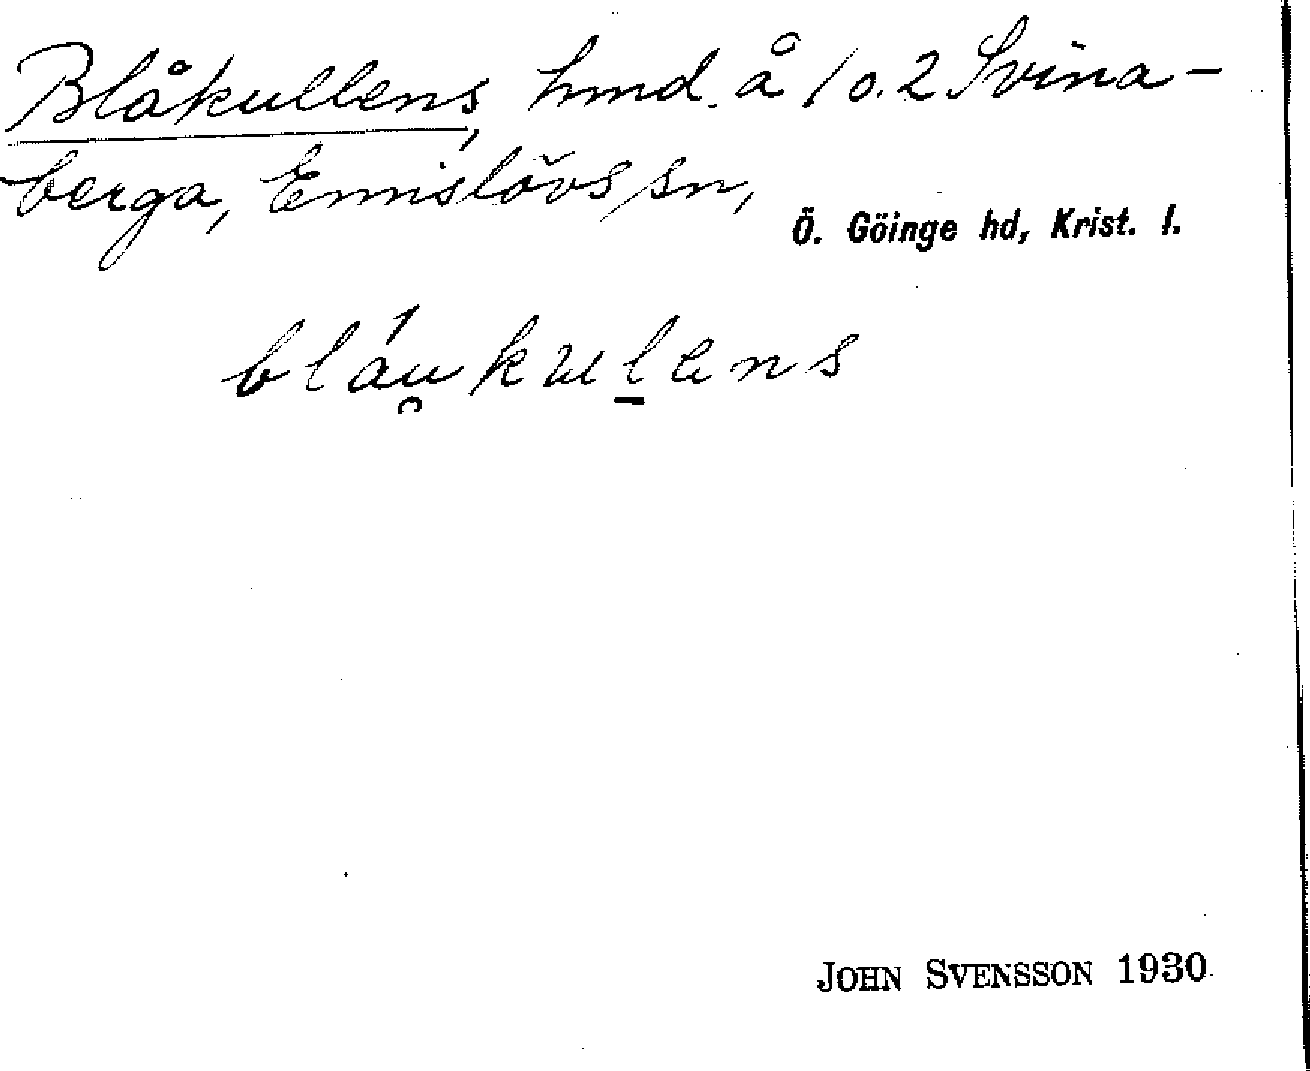 Blåkullens, hmd. å 1 o. 2 Svina-
berga, Emislövs sn,
Ö. Göinge hd, Krist. l.
bláu̯kul̠ens
JOHN SVENSSON 1930